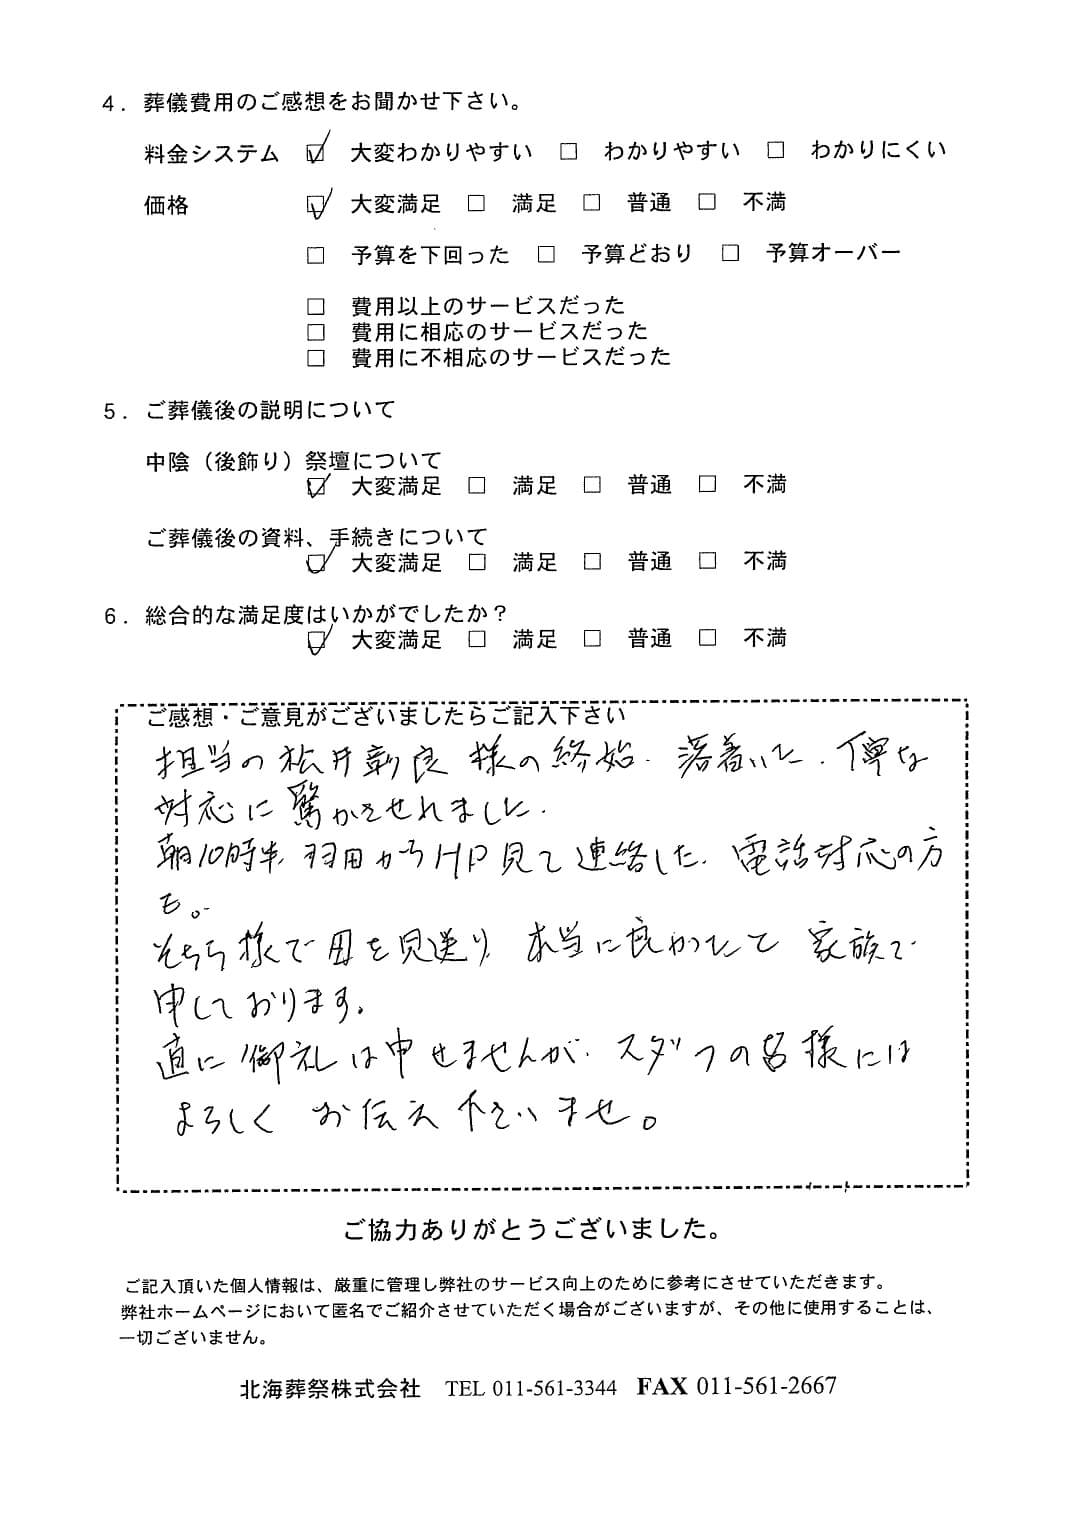 ４．葬儀費用のご感想をお聞かせ下さい。
料金システム ☑ 大変わかりやすい □ わかりやすい □ わかりにくい
価格 ☑ 大変満足 □ 満足 □ 普通 □ 不満
□ 予算を下回った □ 予算どおり □ 予算オーバー
□ 費用以上のサービスだった
□ 費用に相応のサービスだった
□ 費用に不相応のサービスだった
５．ご葬儀後の説明について
中陰（後飾り）祭壇について
☑ 大変満足 □ 満足 □ 普通 □ 不満
ご葬儀後の資料、手続きについて
☑ 大変満足 □ 満足 □ 普通 □ 不満
６．総合的な満足度はいかがでしたか？
☑ 大変満足 □ 満足 □ 普通 □ 不満
ご感想・ご意見がございましたらご記入下さい
担当の松井彰良様の終始、落着いた、丁寧な
対応に驚かさせれました。
朝10時半、羽田からHP見て連絡した、電話対応の方
も。
そちら様で母を見送り、本当に良かったと家族で
申しております。
直に御礼は申せませんが、スタッフの皆様には
よろしくお伝え下さいませ。
ご協力ありがとうございました。
ご記入頂いた個人情報は、厳重に管理し弊社のサービス向上のために参考にさせていただきます。
弊社ホームページにおいて匿名でご紹介させていただく場合がございますが、その他に使用することは、
一切ございません。
北海葬祭株式会社 TEL 011-561-3344 FAX 011-561-2667